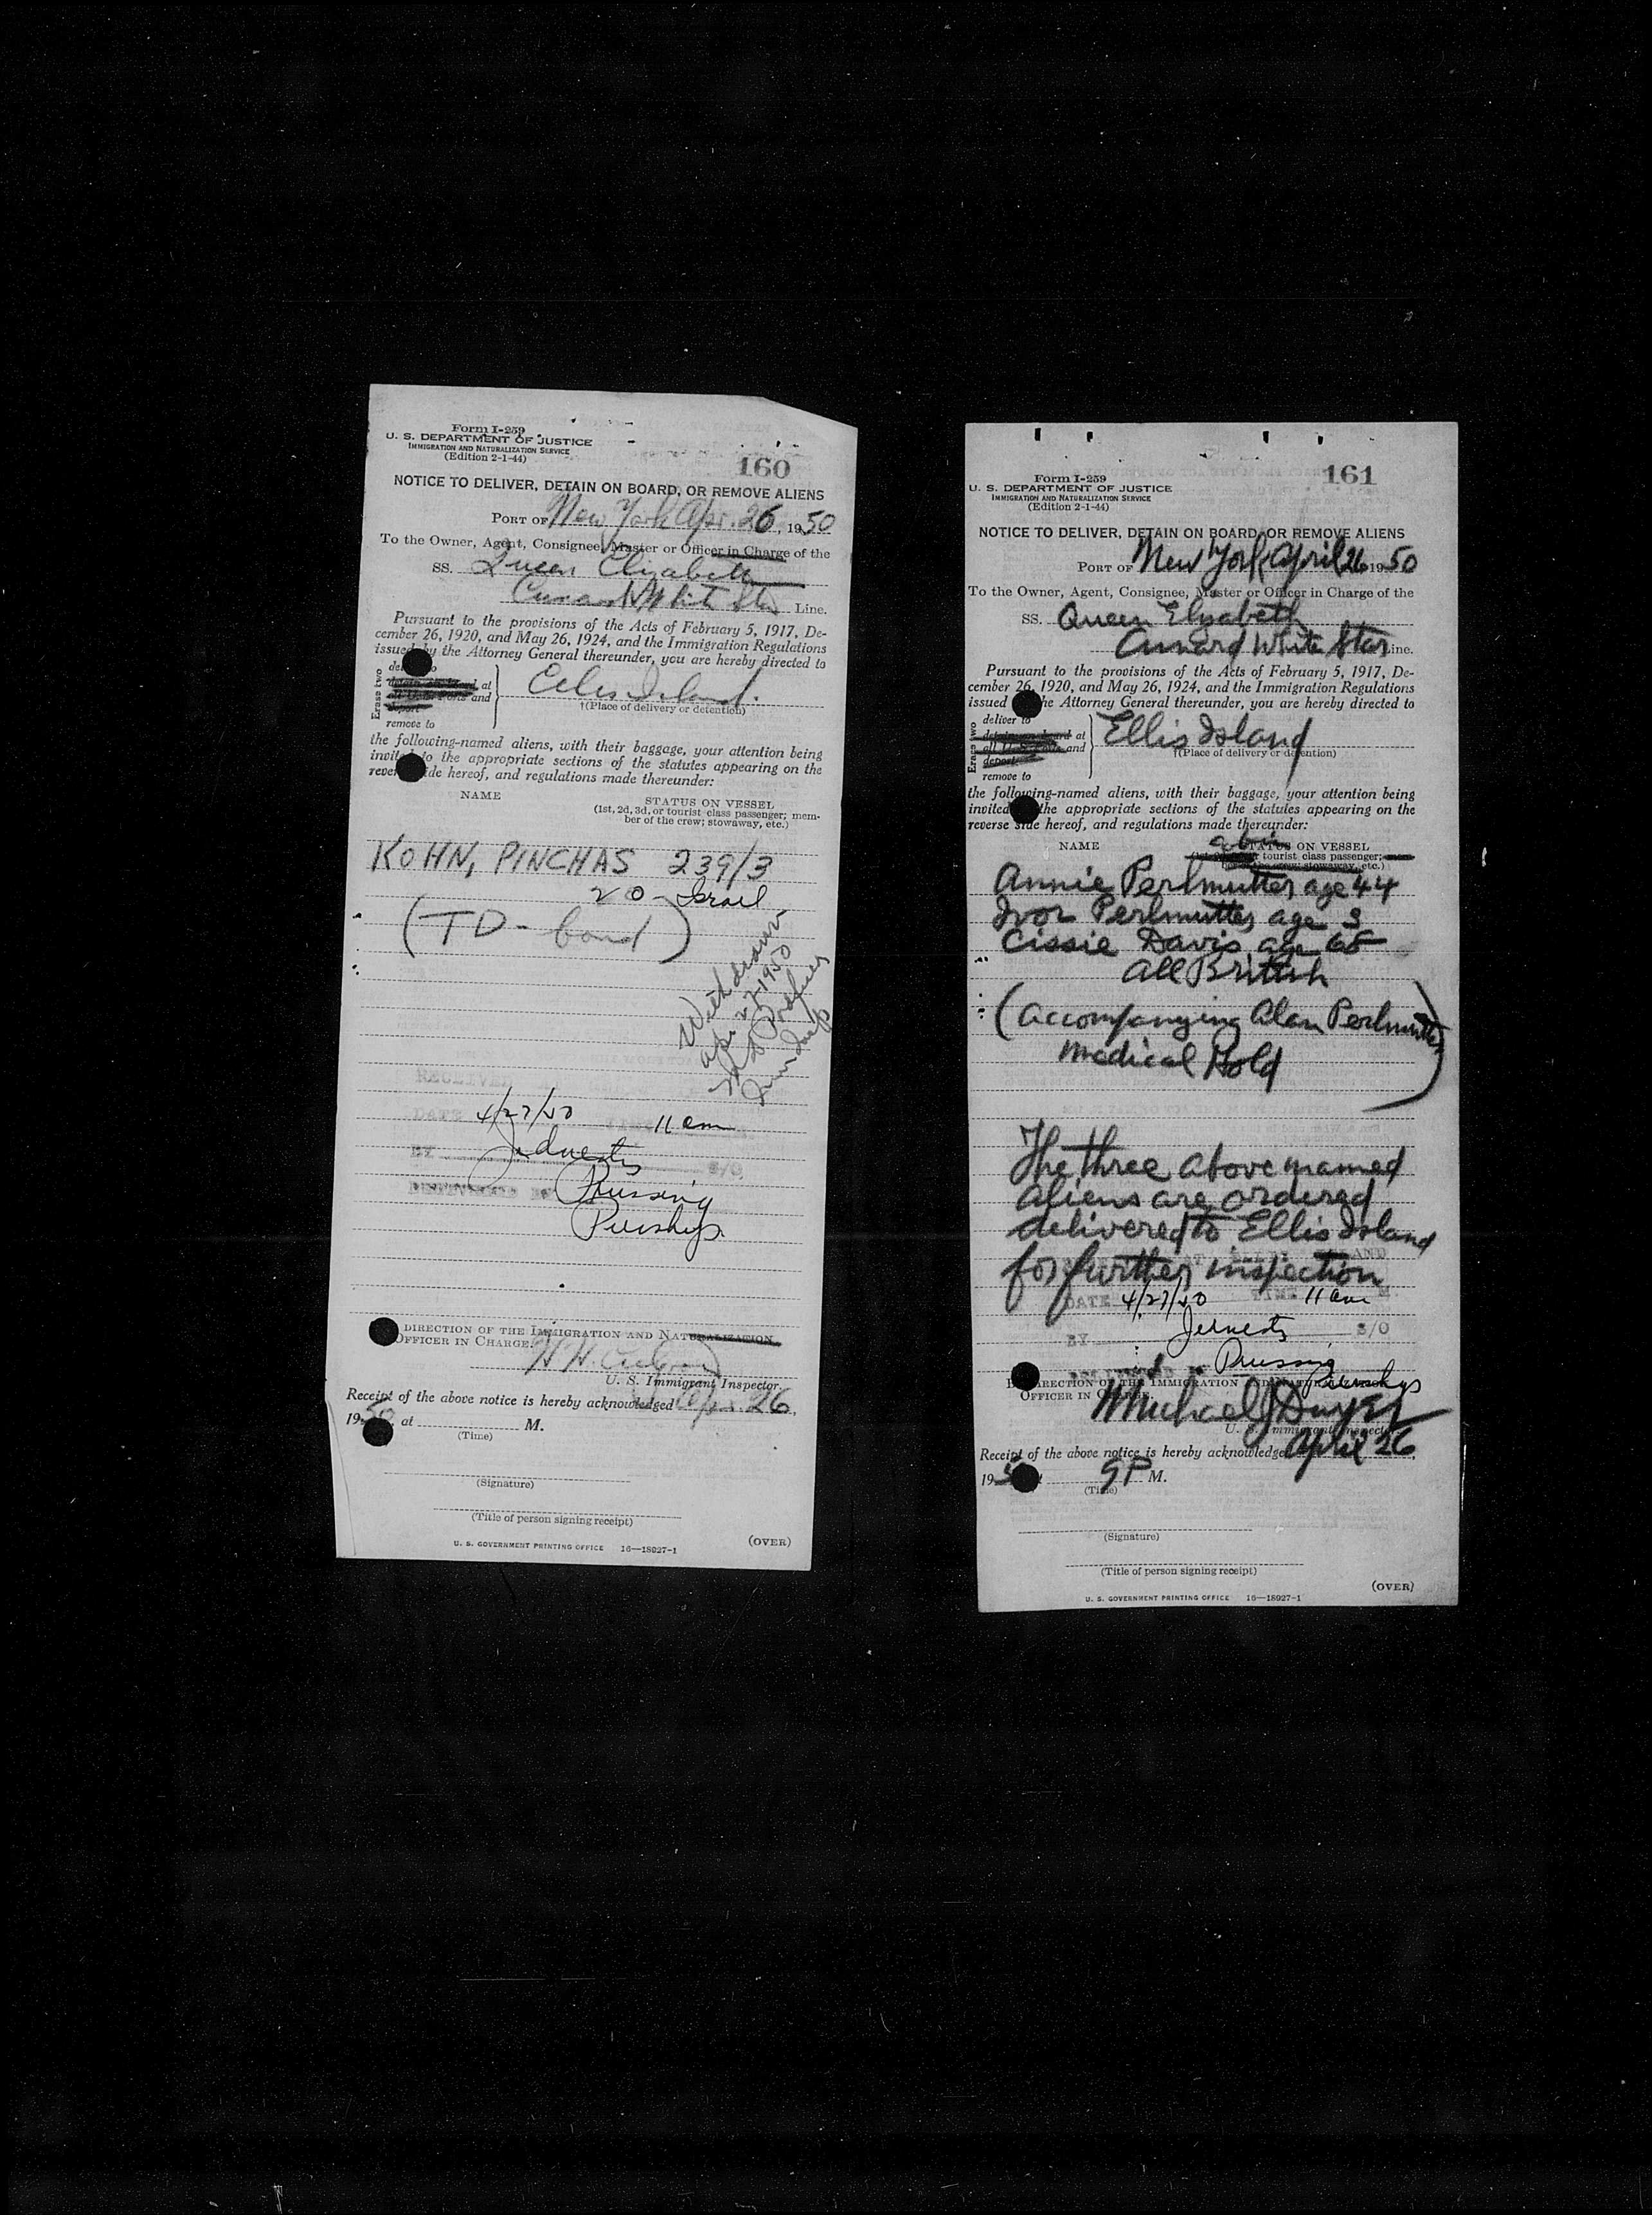 Form I-259
U. S. DEPARTMENT OF JUSTICE
IMMIGRATION AND NATURALIZATION SERVICE
(Edition 2-1-44)
160
NOTICE TO DELIVER, DETAIN ON BOARD, OR REMOVE ALIENS
PORT OF New York Apr. 26, 1950
To the Owner, Agent, Consignee, Master or Officer in Charge of the
SS. Queen Elizabeth
Cunard White Star Line.
Pursuant to the provisions of the Acts of February 5, 1917, De-
cember 26, 1920, and May 26, 1924, and the Immigration Regulations
issued by the Attorney General thereunder, you are hereby directed to
Erase two
at
and
remove to
Ellis Island.
†(Place of delivery or detention)
the following-named aliens, with their baggage, your attention being
invited to the appropriate sections of the statutes appearing on the
reverse side hereof, and regulations made thereunder:
NAME
STATUS ON VESSEL
(1st, 2d, 3d, or tourist class passenger; mem-
ber of the crew; stowaway, etc.)
KOHN, PINCHAS 239/3
20 - Israel
(TD - bond)
Withdrawn
Apr 27 1950
RECEIVED
DATE 4/27/50 11 am
BY S/O
DIRECTION OF THE IMMIGRATION AND NATURALIZATION
OFFICER IN CHARGE.
U. S. Immigrant Inspector.
Receipt of the above notice is hereby acknowledged Apr. 26,
1950, at M.
(Time)
(Signature)
(Title of person signing receipt)
U. S. GOVERNMENT PRINTING OFFICE 16—18027-1
(OVER)
161
Form I-259
U. S. DEPARTMENT OF JUSTICE
IMMIGRATION AND NATURALIZATION SERVICE
(Edition 2-1-44)
NOTICE TO DELIVER, DETAIN ON BOARD, OR REMOVE ALIENS
PORT OF New York April 26 1950
To the Owner, Agent, Consignee, Master or Officer in Charge of the
SS. Queen Elizabeth
Cunard White Star Line.
Pursuant to the provisions of the Acts of February 5, 1917, De-
cember 26, 1920, and May 26, 1924, and the Immigration Regulations
issued the Attorney General thereunder, you are hereby directed to
Erase two
deliver to
detain on board at
all U. S. ports and
deport
remove to
Ellis Island
†(Place of delivery or detention)
the following-named aliens, with their baggage, your attention being
invited the appropriate sections of the statutes appearing on the
reverse side hereof, and regulations made thereunder:
cabin
NAME
STATUS ON VESSEL
tourist class passenger;
stowaway, etc.)
Annie Perlmutter age 44
Ivor Perlmutter, age 3
Cissie Davis, age 65
All British
(Accompanying Alan Perlmutter
Medical Hold)
The three above named
aliens are ordered
delivered to Ellis Island
for further inspection
DATE 4/27/50 TIME 11 am M
BY S/O
DIRECTION OF THE IMMIGRATION
OFFICER IN CHARGE.
Michael J Dwyer
U. S. Immigrant Inspector
Receipt of the above notice is hereby acknowledged April 26,
1950 9P M.
(Time)
(Signature)
(Title of person signing receipt)
(OVER)
U. S. GOVERNMENT PRINTING OFFICE 16—18027-1